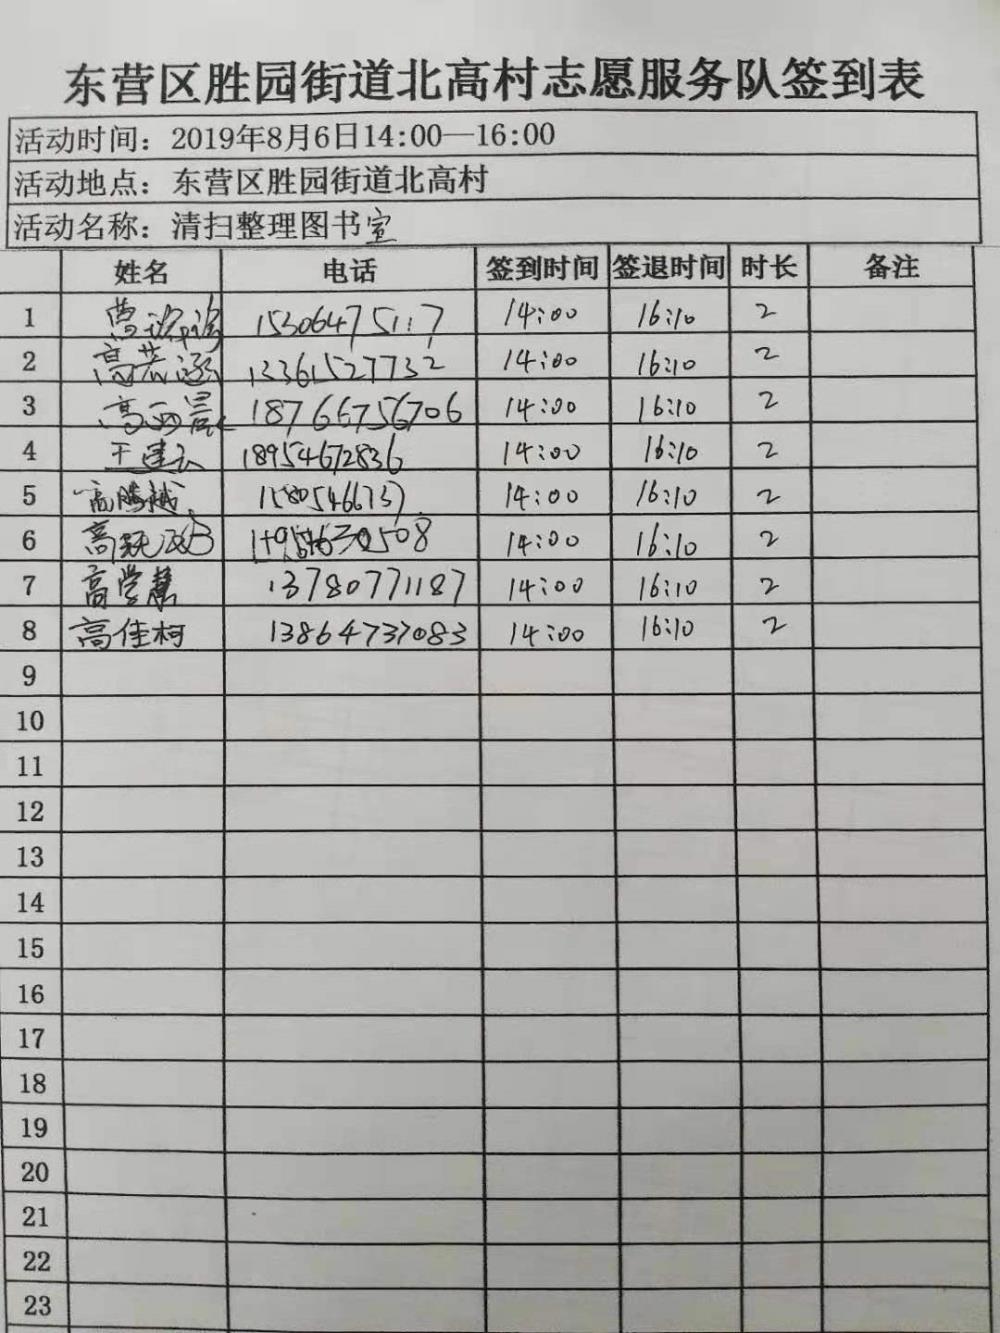 东营区胜园街道北高村志愿服务队签到表
活动时间：2019年8月6日14:00—16:00
活动地点：东营区胜园街道北高村
活动名称：清扫整理图书室
姓名 电话 签到时间 签退时间 时长 备注
1 15306475117 14:00 16:10 2
2 高若涵 13361527732 14:00 16:10 2
3 18766756706 14:00 16:10 2
4 王建云 18954672836 14:00 16:10 2
5 高腾越 14:00 16:10 2
6 14:00 16:10 2
7 高学慧 13780771187 14:00 16:10 2
8 高佳柯 13864737083 14:00 16:10 2
9
10
11
12
13
14
15
16
17
18
19
20
21
22
23